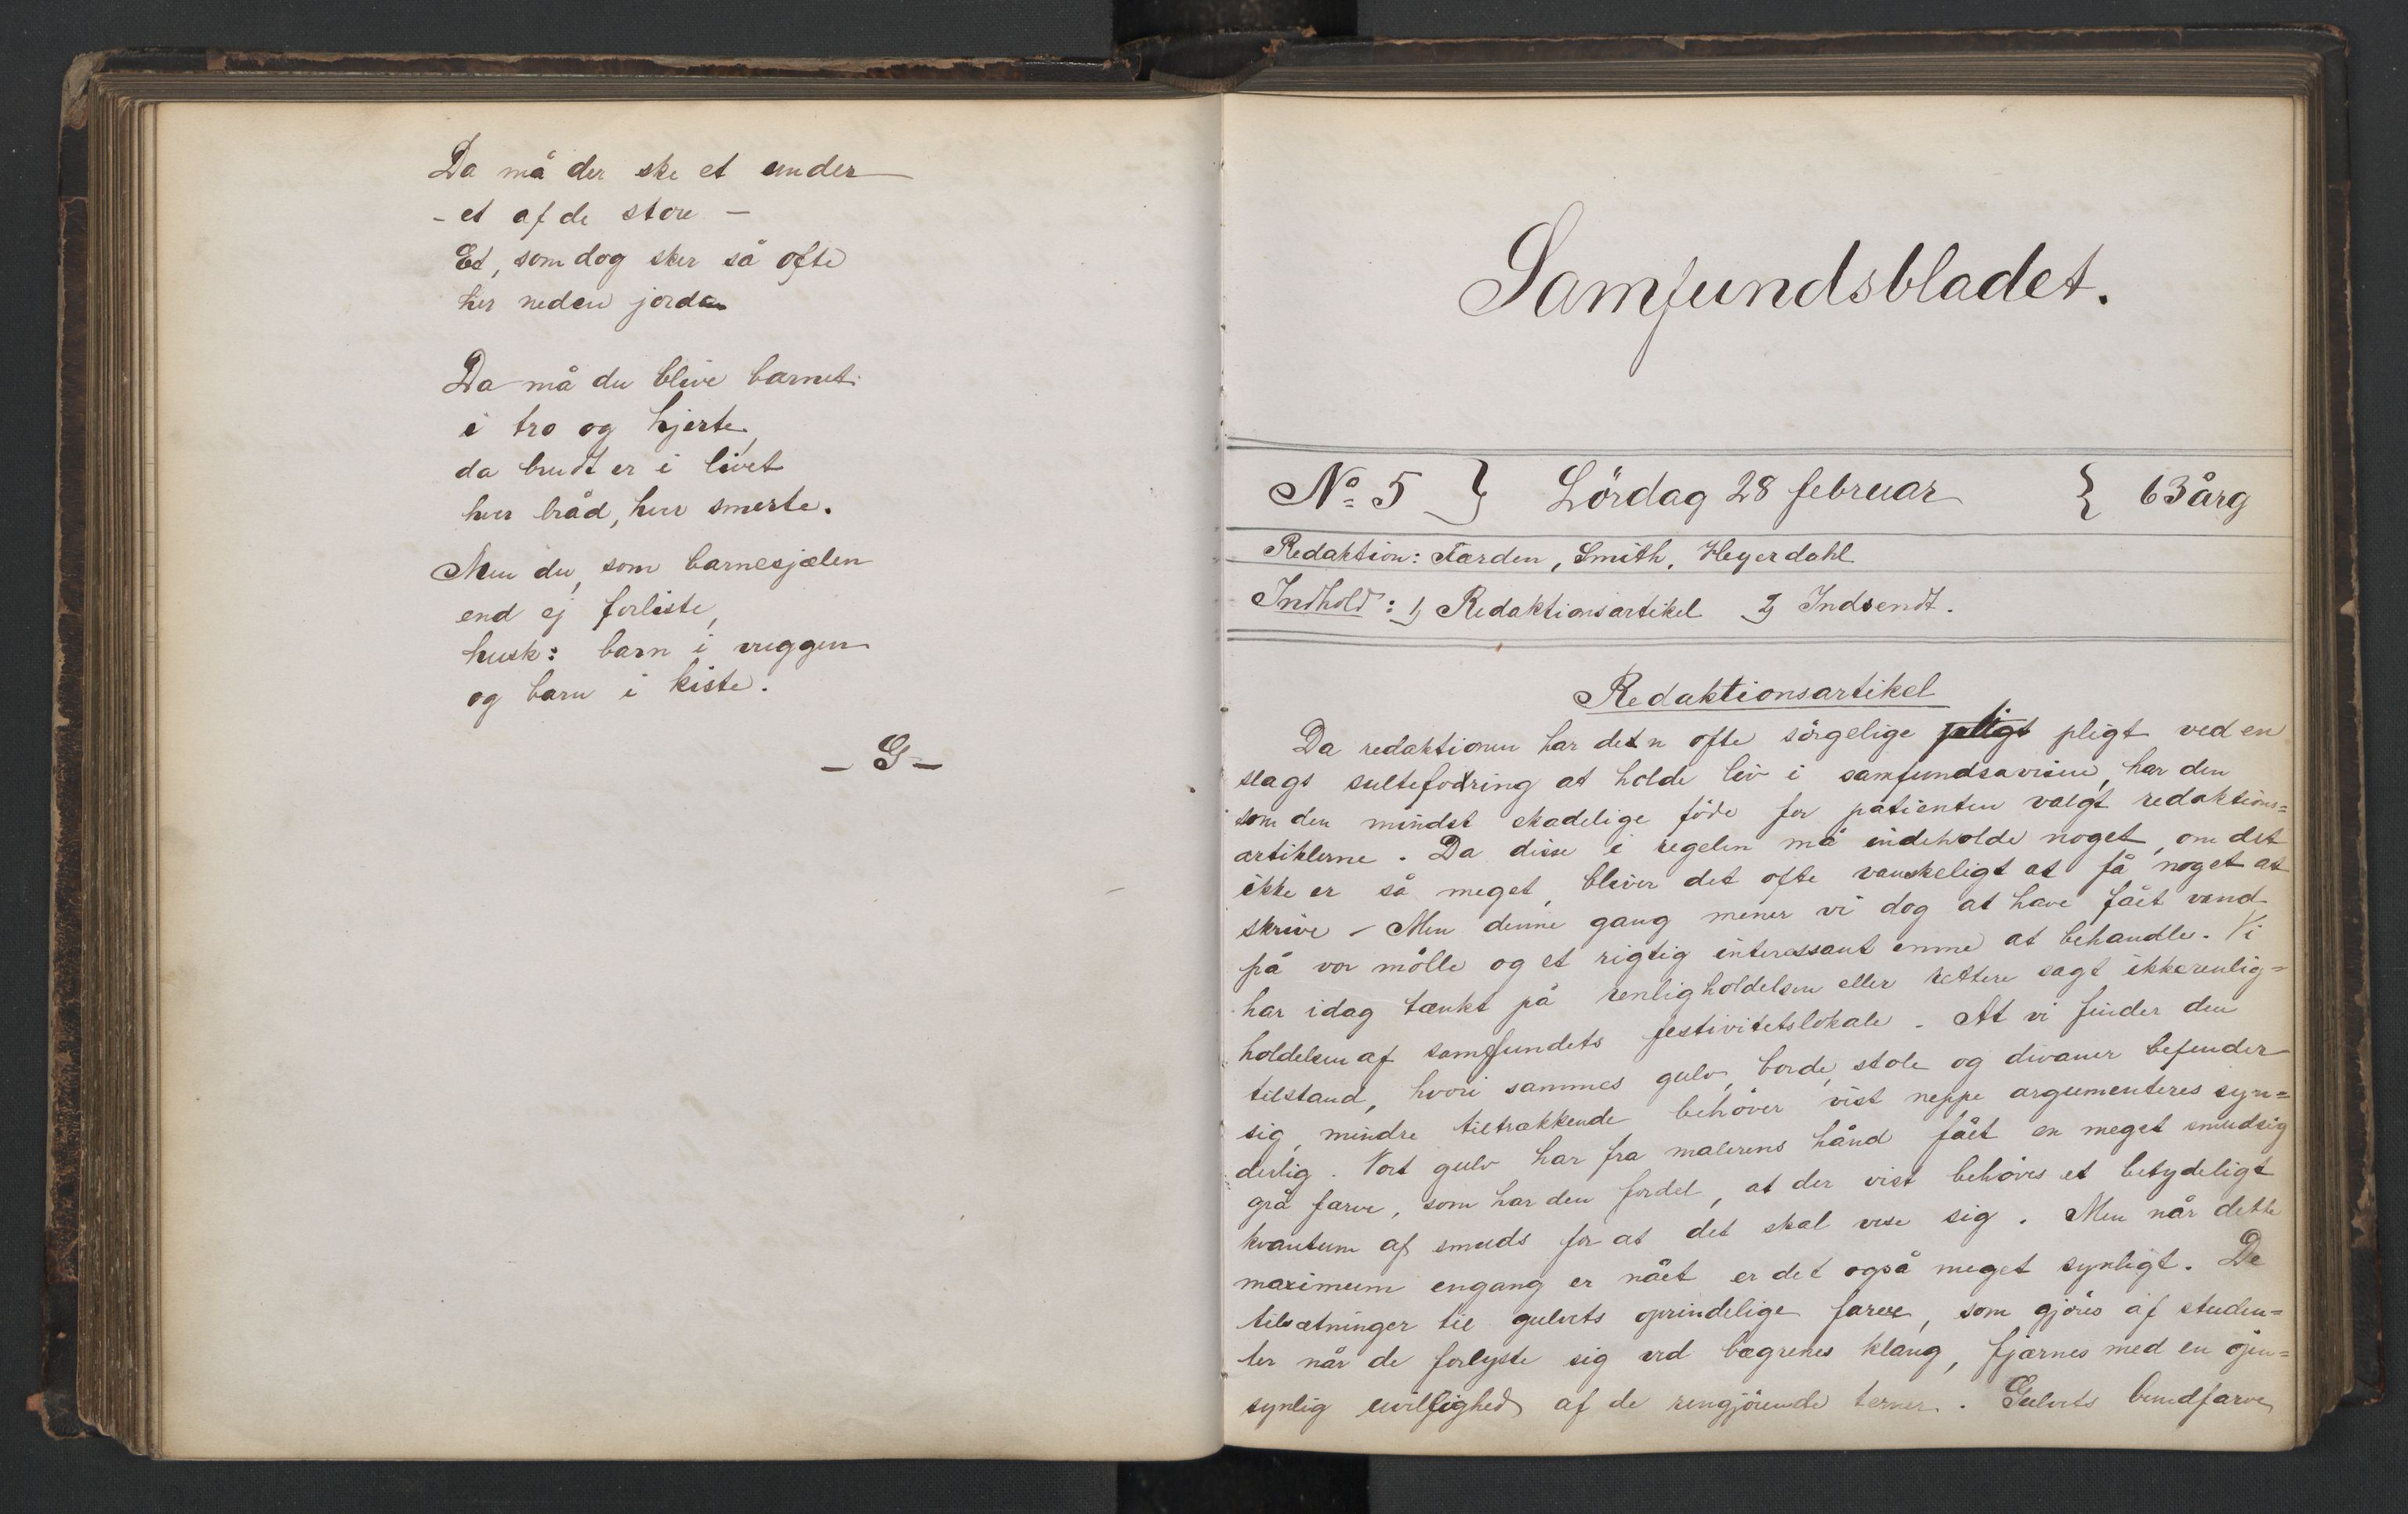 Da må der ske et under
- et af de store -
Et, som dog sker så ofte
her neden jorden
Da må du blive barnet
i tro og hjerte,
da brudt er i livet
hver bråd, hver smerte.
Men du, som barnesjælen
end ej forliste,
husk: barn i vuggen
og barn i kiste.
- G -
Samfundsbladet.
No 5 } Lördag 28 februar { 63 årg
Redaktion: Færden, Smith, Heyerdahl
Indhold: 1) Redaktionsartikel 2) Indsendt.
Redaktionsartikel
Da redaktionen har den ofte sörgelige pligt ved en
slags sultefodring at holde liv i samfundsavisen, har den
som den mindst skadelige föde for patienten valgt redaktions=
artiklerne. Da disse i regelen må indeholde noget, om det
ikke er så meget, bliver det ofte vanskeligt at få noget at
skrive - Men denne gang mener vi dog at have fået vand
på vor mölle og et rigtig interessant emne at behandle. Vi
har idag tænkt på renligholdelsen eller rettere sagt ikkerenlig=
holdelsen af samfundets festivitetslokale. At vi finder den
tilstand, hvori sammes gulv, borde, stole og divaner befinder
sig, mindre tiltrækkende behöver vist neppe argumenteres syn=
derlig. Vort gulv har fra malerens hånd fået en meget smudsig
grå farve, som har den fordel, at der vist behöves et betydeligt
kvantum af smuds for at det skal vise sig. Men når dette
maximum engang er nået er det også meget synligt. De
tilsætninger til gulvets oprindelige farve, som gjöres af studen=
ter når de forlyste sig ved bægrenes klang, fjærnes med en öjen=
synlig uvillighed af de rengjörende terner. Gulvets bundfarve